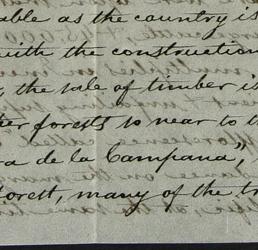 able as the country is
with the construction
the sale of timber is
her forests so near to t
ra de la Campana",
forest, many of the tr